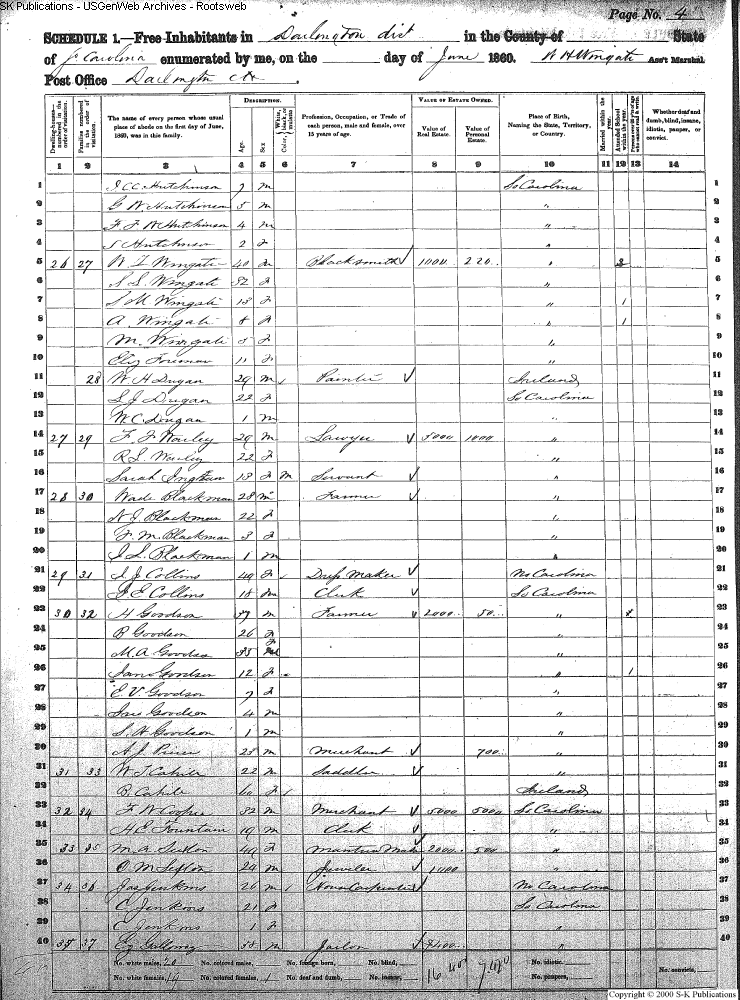 SK Publications - USGenWeb Archives - Rootsweb
Page No. 4
SCHEDULE 1.—Free Inhabitants in Darlington dist in the County of State
of So Carolina enumerated by me, on the day of June 1860. W H Wingate Ass't Marshal.
Post Office Darlington CH
Dwelling-houses—numbered in the order of visitation. Families numbered in the order of visitation. The name of every person whose usual place of abode on the first day of June, 1860, was in this family. DESCRIPTION. Age. Sex. Color, White, black, or mulatto. Profession, Occupation, or Trade of each person, male and female, over 15 years of age. VALUE OF ESTATE OWNED. Value of Real Estate. Value of Personal Estate. Place of Birth, Naming the State, Territory, or Country. Married within the year. Attended School within the year. Persons over 20 y'rs of age who cannot read & write. Whether deaf and dumb, blind, insane, idiotic, pauper, or convict.
1 2 3 4 5 6 7 8 9 10 11 12 13 14
1 J C C Hutchinson 7 m So Carolina 1
2 G W Hutchinson 5 m " 2
3 F F W Hutchinson 4 m " 3
4 S Hutchinson 2 f " 4
5 26 27 W I Wingate 40 m Blacksmith 1000 220 " 5
6 S S Wingate 32 f " 6
7 S M Wingate 13 f " 1 7
8 A Wingate 8 f " 1 8
9 M Wingate 5 f " 9
10 Eliz Foreman 11 f " 10
11 28 W H Dugan 29 m / Painter Ireland 11
12 S J Dugan 22 f So Carolina 12
13 W C Dugan 1 m " 13
14 27 29 F F Warley 29 m Lawyer 5000 1000 " 14
15 R L Warley 22 f " 15
16 Sarah Ingram 13 f M Servant " 16
17 28 30 Wade Blackman 28 m Farmer " 17
18 N J Blackman 22 f " 18
19 F M Blackman 3 f " 19
20 J L Blackman 1 m " 20
21 29 31 S J Collins 49 f / Dress Maker No Carolina 21
22 J E Collins 18 m Clerk So Carolina 22
23 30 32 H Goodson 37 m Farmer 2000 50 " 23
24 R Goodson 26 f " 24
25 M A Goodson 35 f " 25
26 Jane Goodson 12 f " 1 26
27 E V Goodson 7 f " 27
28 Goodson 4 m " 28
29 S W Goodson 1 m " 29
30 A J 23 m Merchant 700 " 30
31 31 33 W T Cahill 22 m Saddler " 31
32 B Cahill 60 f / Ireland 32
33 32 34 F W Cooper 32 m Merchant 5000 5000 So Carolina 33
34 H E Fountain 19 m Clerk " 34
35 33 35 M A Sexton 49 f Mantua Maker 2000 500 " 35
36 O M Sexton 24 m Jeweler 1100 " 36
37 34 36 Jas Jenkins 26 m / House Carpenter No Carolina 37
38 C Jenkins 21 f So Carolina 38
39 C Jenkins 1 f " 39
40 35 37 Galloway 38 m Jailor " 40
No. white males, 20 No. colored males, No. foreign born, No. blind, No. idiotic, No. convicts,
No. white females, 19 No. colored females, 1 No. deaf and dumb, No. insane, No. paupers,
Copyright © 2000 S-K Publications